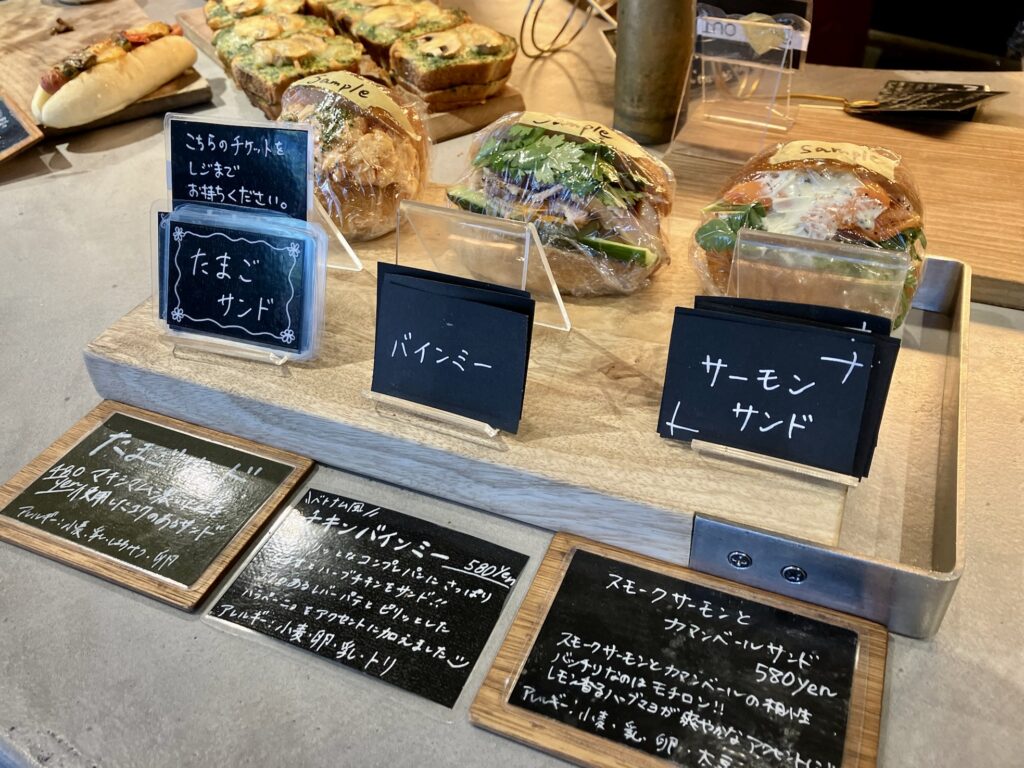 sample
sample
sample
OUT
こちらのチケットを
レジまで
お持ちください。
たまご
サンド
バインミー
サーモン
サンド
たまごサンド
480
yen
マキシマム
使用したコクのあるサンド
アレルギー:小麦・乳・卵
\\ベトナム風//
チキンバインミー
580yen
なコンプレパンに さっぱり
ハーブチキンをサンド!!
コクのあるレバーパテとピリッとした
ハラペーニョをアクセントに加えました
アレルギー:小麦・卵・乳・トリ
スモークサーモンと
カマンベールサンド
580yen
スモークサーモンとカマンベールの相性
バッチリなのはモチロン!!
レモン香るハーブマヨが爽やかなアクセントに
アレルギー:小麦・乳・卵・大豆